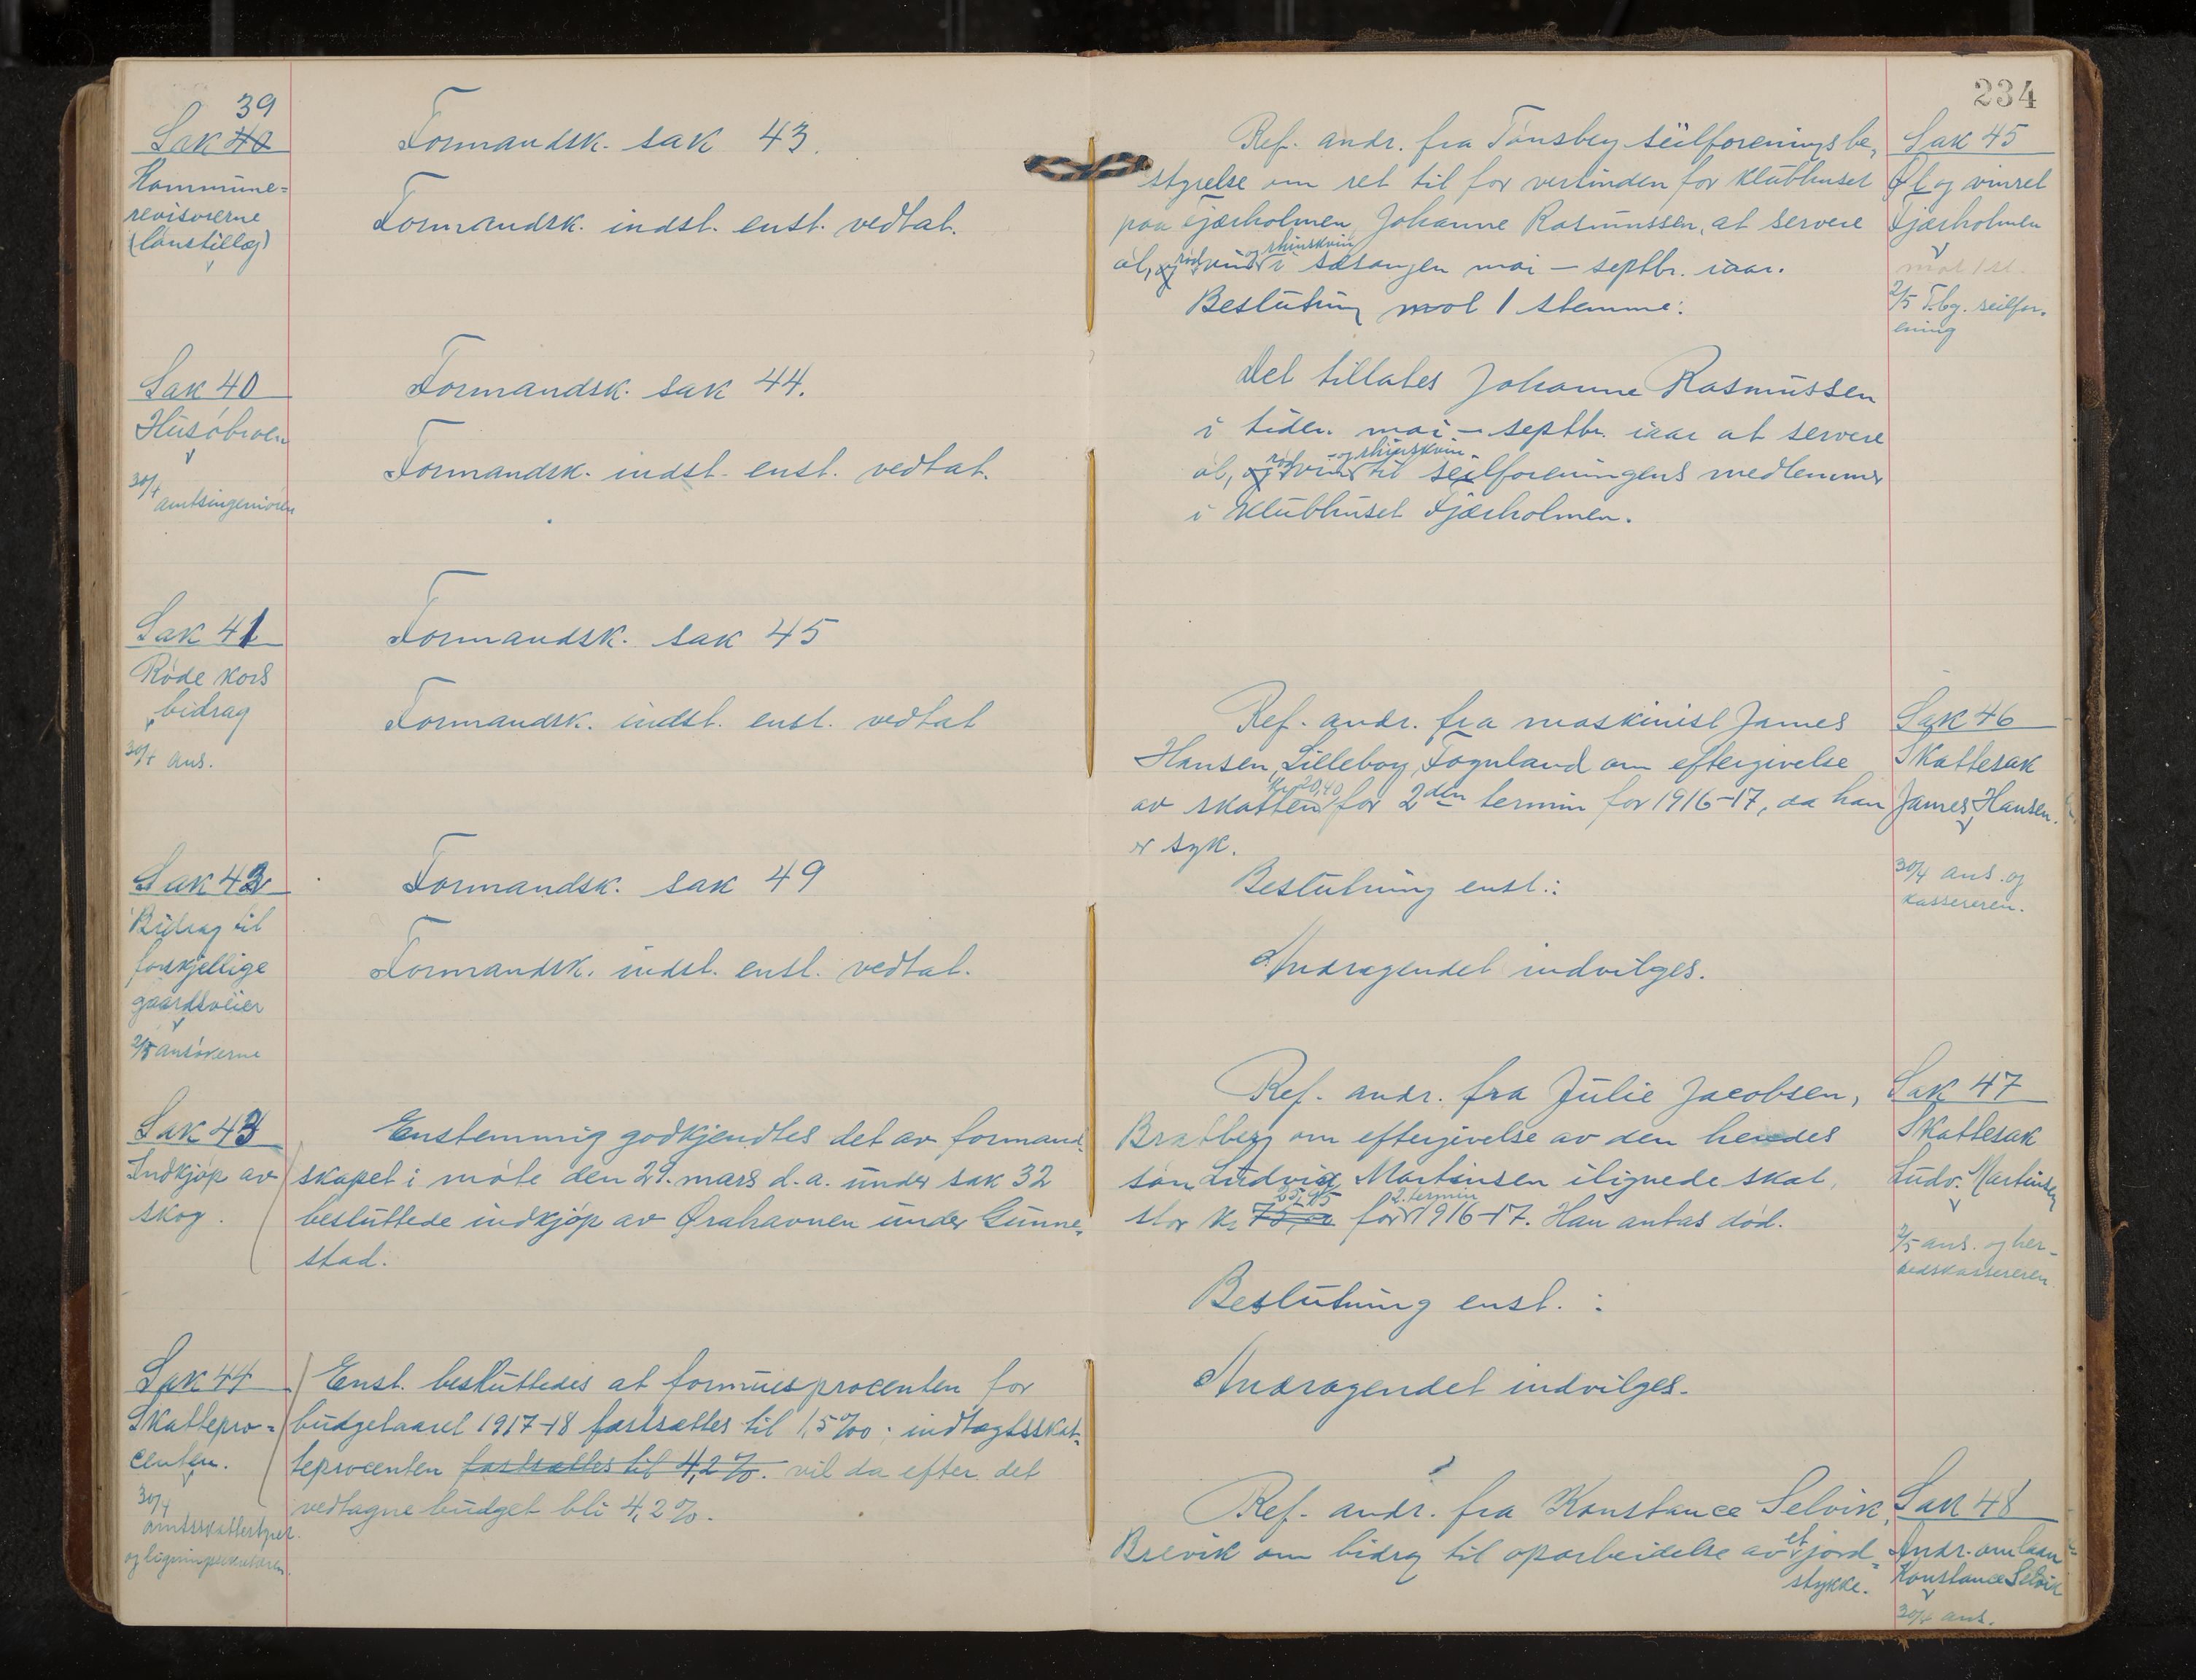 39
Sak 40
Kommune=
revisorerne
(lønstillæg)
Formandsk. sak 43.
Formandsk. indst. enst. vedtat.
Sak 40
Husøbroen
30/4 amtsingeniøren
Formandsk. sak 44.
Formandsk. indst. enst. vedtat.
Sak 41
Røde kors
bidrag
30/4 ans.
Formandsk. sak 45
Formandsk. indst. enst. vedtat
Sak 42
Bidrag til
forskjellige
gaardsveier
2/5 ansøkerne
Formandsk. sak 49
Formandsk. indst. enst. vedtat.
Sak 43
Indkjøp av
skog.
Enstemmig godkjendtes det av formand-
skapet i møte den 29. mars d.a. under sak 32
besluttede indkjøp av Ørahavnen under Gunne-
stad.
Sak 44
Skattepro=
centen.
30/4
amtsskattestyret
og ligningssekretæren.
Enst. besluttedes at formuesprocenten for
budgetaaret 1917-18 fastsættes til 1,5 ‰; indtægtsskat-
teprocenten fastsættes til 4,2 %. vil da efter det
vedtagne budget bli 4,2 %.
234
Ref. andr. fra Tønsberg seilforenings be-
styrelse om ret til for vertinden for klubhuset
paa Fjærholmen, Johanne Rasmussen, at servere
øl, og rødvin og rhinskvin i sæsongen mai — septbr. iaar.
Beslutning mot 1 stemme:
Det tillates Johanne Rasmussen
i tiden mai — septbr. iaar at servere
øl, og rødvin og rhinskvin til seilforeningens medlemmer
i klubhuset Fjærholmen.
Sak 45
Øl og vinret
Fjærholmen
mot 1 st.
2/5 T.bg. seilfor-
ening
Ref. andr. fra maskinist James
Hansen, Lilleborg, Føynland om eftergivelse
av skatten kr. 20,40 for 2den termin for 1916-17, da han
er syk.
Beslutning enst.:
Andragendet indvilges.
Sak 46
Skattesak
James Hansen.
30/4 ans. og
kassereren.
Ref. andr. fra Julie Jacobsen,
Bratberg om eftergivelse av den hendes
søn Ludvig Martinsen ilignede skat,
stor kr. 25,95 for 2. termin 1916-17. Han antas død.
Beslutning enst. :
Andragendet indvilges.
Sak 47
Skattesak
Ludv. Martinsen
2/5 ans. og her-
redskassereren.
Ref. andr. fra Konstance Selvik,
Brevik om bidrag til oparbeidelse av et jord-
stykke.
Sak 48
Andr. om laan
Konstance Selvik
30/4 ans.